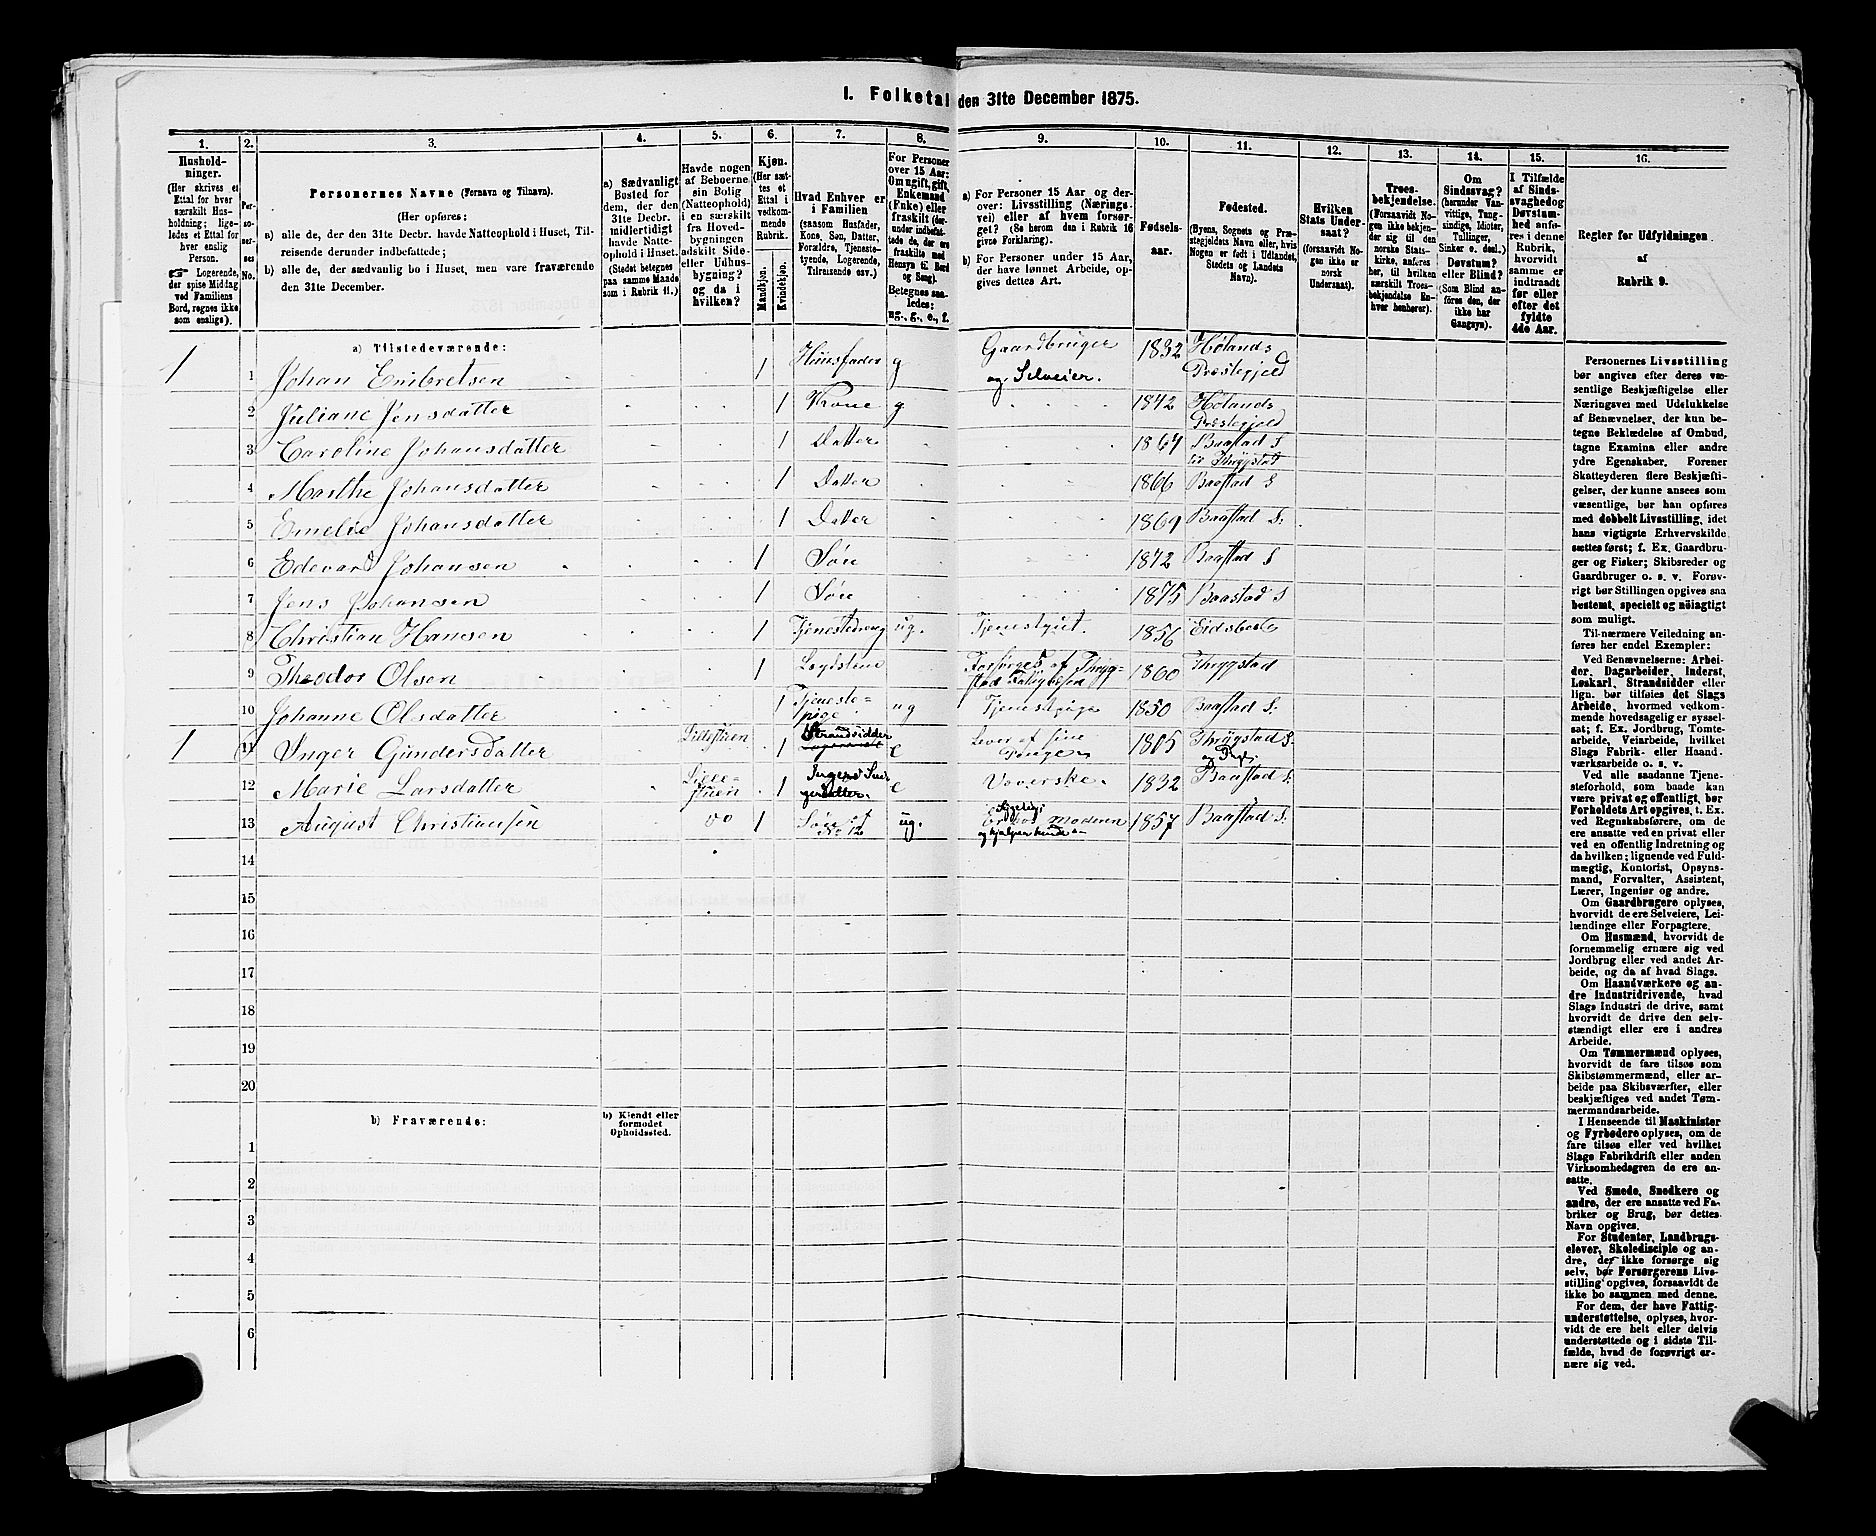 I. Folketal den 31te December 1875.
1. 2. 3. 4. 5. 6. 7. 8. 9. 10. 11. 12. 13. 14. 15. 16.
Hushold-
ninger.
(Her skrives et
Ettal for hver
særskilt Hus-
holdning; lige-
ledes et Ettal for
hver enslig
Person.
☞ Logerende,
der spise Middag
ved Familiens
Bord, regnes ikke
som enslige).
Per-
so-
ner-
nes
No.
Personernes Navne (Fornavn og Tilnavn).
(Her opføres:
a) alle de, der den 31te Decbr. havde Natteophold i Huset, Til-
reisende derunder indbefattede;
b) alle de, der sædvanlig bo i Huset, men vare fraværende
den 31te December.
a) Sædvanligt
Bosted for
dem, der den
31te Decbr.
midlertidigt
havde Natte-
ophold i Huset.
(Stedet betegnes
paa samme Maade
som i Rubrik 11.)
Havde nogen
af Beboerne
sin Bolig
(Natteophold)
i en særskilt
fra Hoved-
bygningen
adskilt Side-
eller Udhus-
bygning?
og da i
hvilken?
Kjøn.
(Her sæt-
tes et
Ettal i
vedkom-
mende
Rubrik.
Mandkjøn.
Kvindekjøn.
Hvad Enhver er
i Familien
(saasom Husfader,
Kone, Søn, Datter,
Forældre, Tjeneste-
tyende, Logerende,
Tilreisende osv.)
For Personer
over 15 Aar:
Om ugift, gift,
Enkemand
(Enke) eller
fraskilt (der-
under indbefat-
tede de, der ere
fraskilte med
Hensyn til Bord
og Seng).
Betegnes saa-
ledes:
ug., g., e., f.
a) For Personer 15 Aar og der-
over: Livsstilling (Nærings-
vei) eller af hvem forsør-
get? (Se herom den i Rubrik 16
givne Forklaring).
b) For Personer under 15 Aar,
der have lønnet Arbeide, op-
gives dettes Art.
Fødsels-
aar.
Fødested.
(Byens, Sognets og Præ-
stegjeldets Navn eller, hvis
Nogen er født i Udlandet,
Stedets og Landets
Navn).
Hvilken
Stats Under-
saat?
(forsaavidt No-
gen ikke er
norsk
Undersaat).
Troes-
bekjendelse.
(Forsaavidt No-
gen ikke bekjen-
der sig til den
norske Stats-
kirke, anføres
her, til hvilken
særskilt Troes-
bekjendelse En-
hver henhører).
Om
Sindssvag?
(herunder Van-
vittige, Tung-
sindige, Idioter,
Tullinger,
Sinker o. desl.)
Døvstum?
eller Blind?
(Som Blind an-
føres den, der
ikke har
Gangsyn).
I Tilfælde
af Sinds-
svaghed og
Døvstum-
hed anfø-
res i denne
Rubrik,
hvorvidt
samme er
indtraadt
før eller
efter det
fyldte
4de Aar.
Regler for Udfyldningen
af
Rubrik 9.
a) Tilstedeværende:
1 1 Johan Embretsen 1 Huusfader g Gaardbruger og Selveier. 1832 Hølands Præstegjeld
2 Juliane Jensdatter 1 Kone g 1842 Hølands Præstegjeld
3 Caroline Johansdatter 1 Datter 1864 Baastad S til Thrygstad
4 Marthe Johansdatter 1 Datter 1866 Baastad S
5 Emelie Johansdatter 1 Datter 1869 Baastad S.
6 Edevard Johansen 1 Søn 1872 Baastad S
7 Jens Johansen 1 Søn 1875 Baastad S
8 Christian Hansen 1 Tjenestedreng ug. Tjenestgut. 1856 Eidsberg
9 Theodor Olsen 1 Legdslem Forsørges af Thryg-
stad 1860 Thrygstad
10 Johanne Olsdatter 1 Tjeneste-
pige ug Tjenestpige 1850 Baastad S.
1 11 Inger Gundersdatter Lillestuen 1 Strandsidder e Lever af sine Penge 1805 Thrygstad S. og Prgj.
12 Marie Larsdatter Lille-
stuen 1 Ingers e Væverske. 1832 Baastad S.
13 August Christiansen 1 Søn af No 12 ug. Moderen 1857 Baastad S.
14
15
16
17
18
19
20
b) Fraværende:
b) Kjendt eller
formodet
Opholdssted.
1
2
3
4
5
6
Personernes Livsstilling
bør angives efter deres væ-
sentlige Beskjæftigelse eller
Næringsvei med Udelukkelse
af Benævnelser, der kun be-
tegne Beklædelse af Ombud,
tagne Examina eller andre
ydre Egenskaber. Forener
Skatteyderen flere Beskjæfti-
gelser, der kunne ansees som
væsentlige, bør han opføres
med dobbelt Livsstilling, idet
hans vigtigste Erhvervskilde
sættes først; f. Ex. Gaardbru-
ger og Fisker; Skibsreder og
Gaardbruger o. s. v. Forøv-
rigt bør Stillingen opgives saa
bestemt, specielt og nöiagtigt
som muligt.
Til nærmere Veiledning an-
føres her endel Exempler:
Ved Benævnelserne: Arbei-
der, Dagarbeider, Inderst,
Løskarl, Strandsidder eller
lign. bør tilføies det Slags
Arbeide, hvormed vedkom-
mende hovedsagelig er syssel-
sat; f. Ex. Jordbrug, Tomte-
arbeide, Veiarbeide, hvilket
Slags Fabrik- eller Haand-
værksarbeide o. s. v.
Ved alle saadanne Tjene-
steforhold, som baade kan
være privat og offentligt, bør
Forholdets Art opgives, t. Ex.
ved Regnskabsførere, om de
ere ansatte ved en privat eller
ved en offentlig Indretning og
da hvilken; lignende ved Fuld-
mægtig, Kontorist, Opsyns-
mand, Forvalter, Assistent,
Lærer, Ingeniør og andre.
Om Gaardbrugere oplyses,
hvorvidt de ere Selveiere, Lei-
lændinge eller Forpagtere.
Om Husmænd, hvorvidt de
fornemmelig ernære sig ved
Jordbrug eller ved andet Ar-
beide, og da af hvad Slags.
Om Haandværkere og an-
dre Industridrivende, hvad
Slags Industri de drive, samt
hvorvidt de drive den selv-
stændigt eller ere i andres
Arbeide.
Om Tømmermænd oplyses,
hvorvidt de fare tilsøs som
Skibstømmermænd, eller ar-
beide paa Skibsværfter, eller
beskjæftiges ved andet Tøm-
mermandsarbeide.
I Henseende til Maskinister
og Fyrbødere oplyses, om de
fare tilsøs eller ved hvilket
Slags Fabrikdrift eller anden
Virksomhedsgren de ere an-
satte.
Ved Smede, Snedkere og
andre, der ere ansatte ved Fa-
briker og Brug, bør dettes
Navn opgives.
For Studenter, Landbrugs-
elever, Skoledisciple og an-
dre, der ikke forsørge sig
selv, bør Forsørgerens Livs-
stilling opgives, forsaavidt de
ikke bo sammen med denne.
For dem, der have Fattig-
understøttelse, oplyses, hvor-
vidt de ere helt eller delvis
understøttede og i sidste Til-
fælde, hvad de forøvrigt er-
nære sig ved.